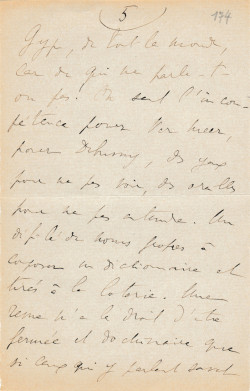 5
174
Gyp, de tout le monde,
car de qui ne parle-t-
on pas. On sent l'incom-
pétence pour Ver meer,
pour Debussy, des yeux
pour ne pas voir, des oreilles
pour ne pas entendre. Un
défilé de noms propres à
composer un dictionnaire et
tirés à la loterie. Une
revue n'a le droit d'être
fermée et doctrinaire que
si ceux qui y parlent savent